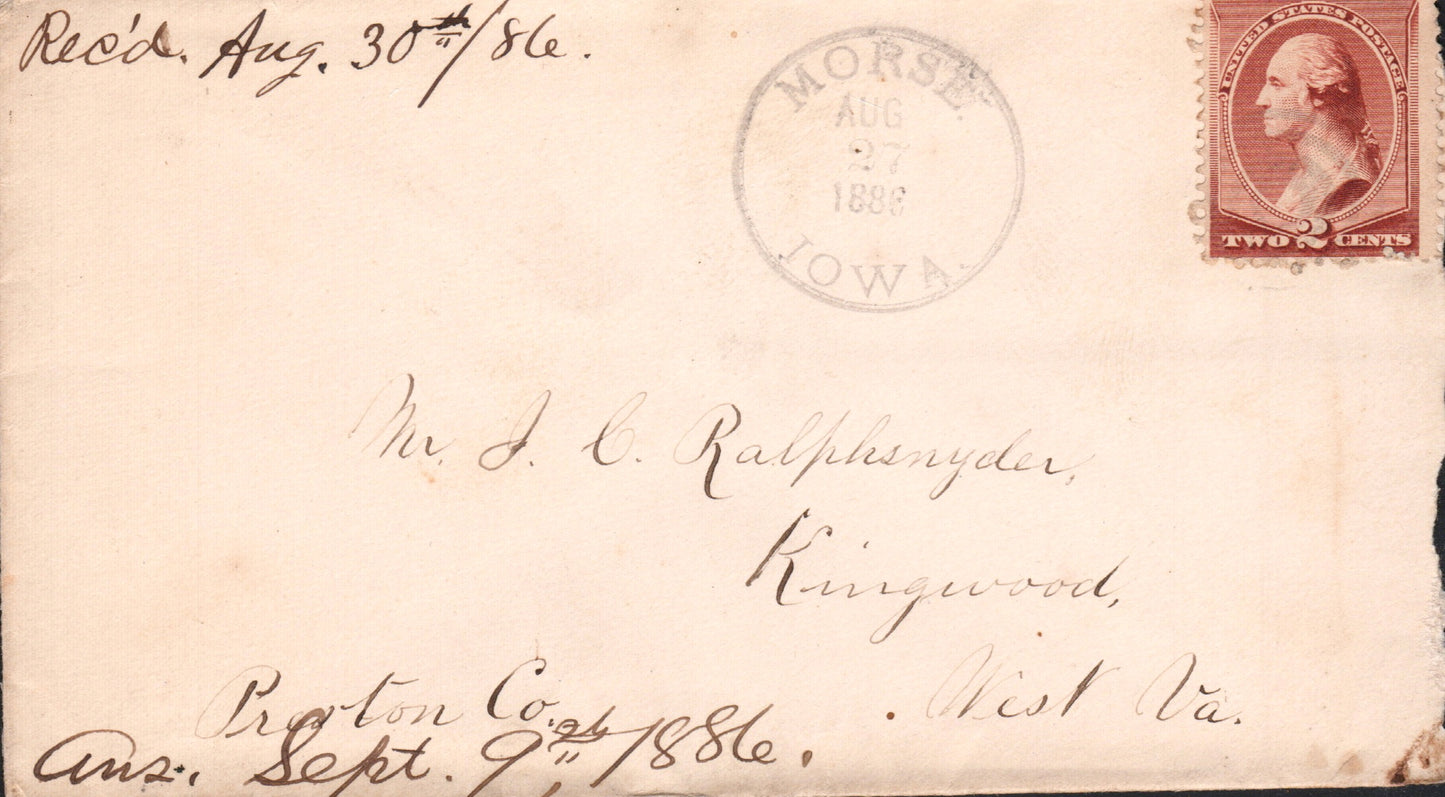 Rec'd. Aug. 30th/86.
MORSE
AUG
27
1886
IOWA.
UNITED STATES POSTAGE
TWO 2 CENTS
Mr. J. C. Ralphsnyder,
Kingwood,
Preston Co. West Va.
Ans. Sept. 9th, 1886.